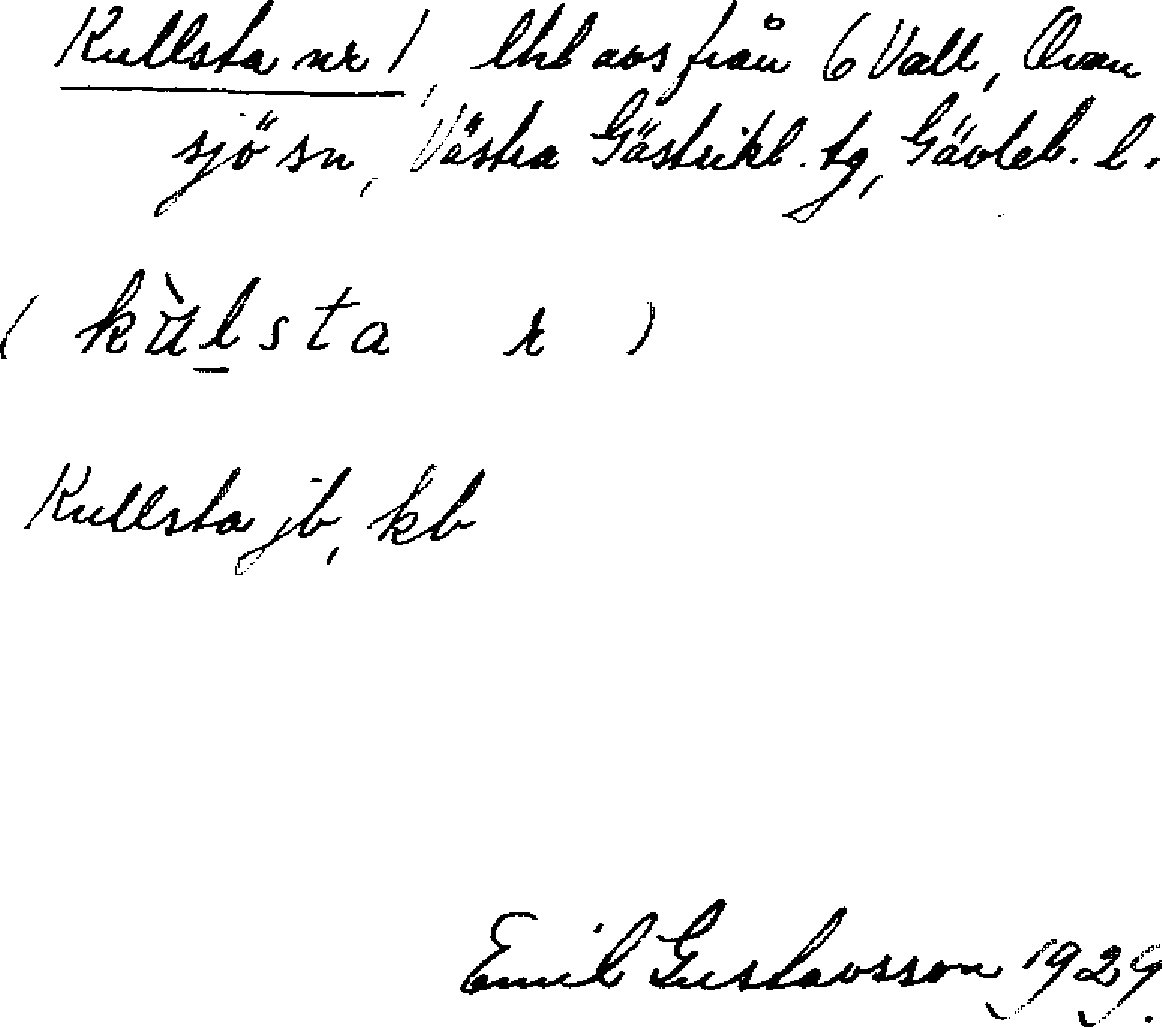 Kullsta nr 1, lht avs från 6 Vall, Ovan
sjö sn, Västra Gästrikl. tg, Gävleb. l.
( kùlsta r )
Kullsta jb, kb
Emil Gustavsson 1929.